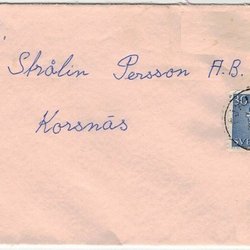 Strålin Persson A.B.
Korsnäs
30